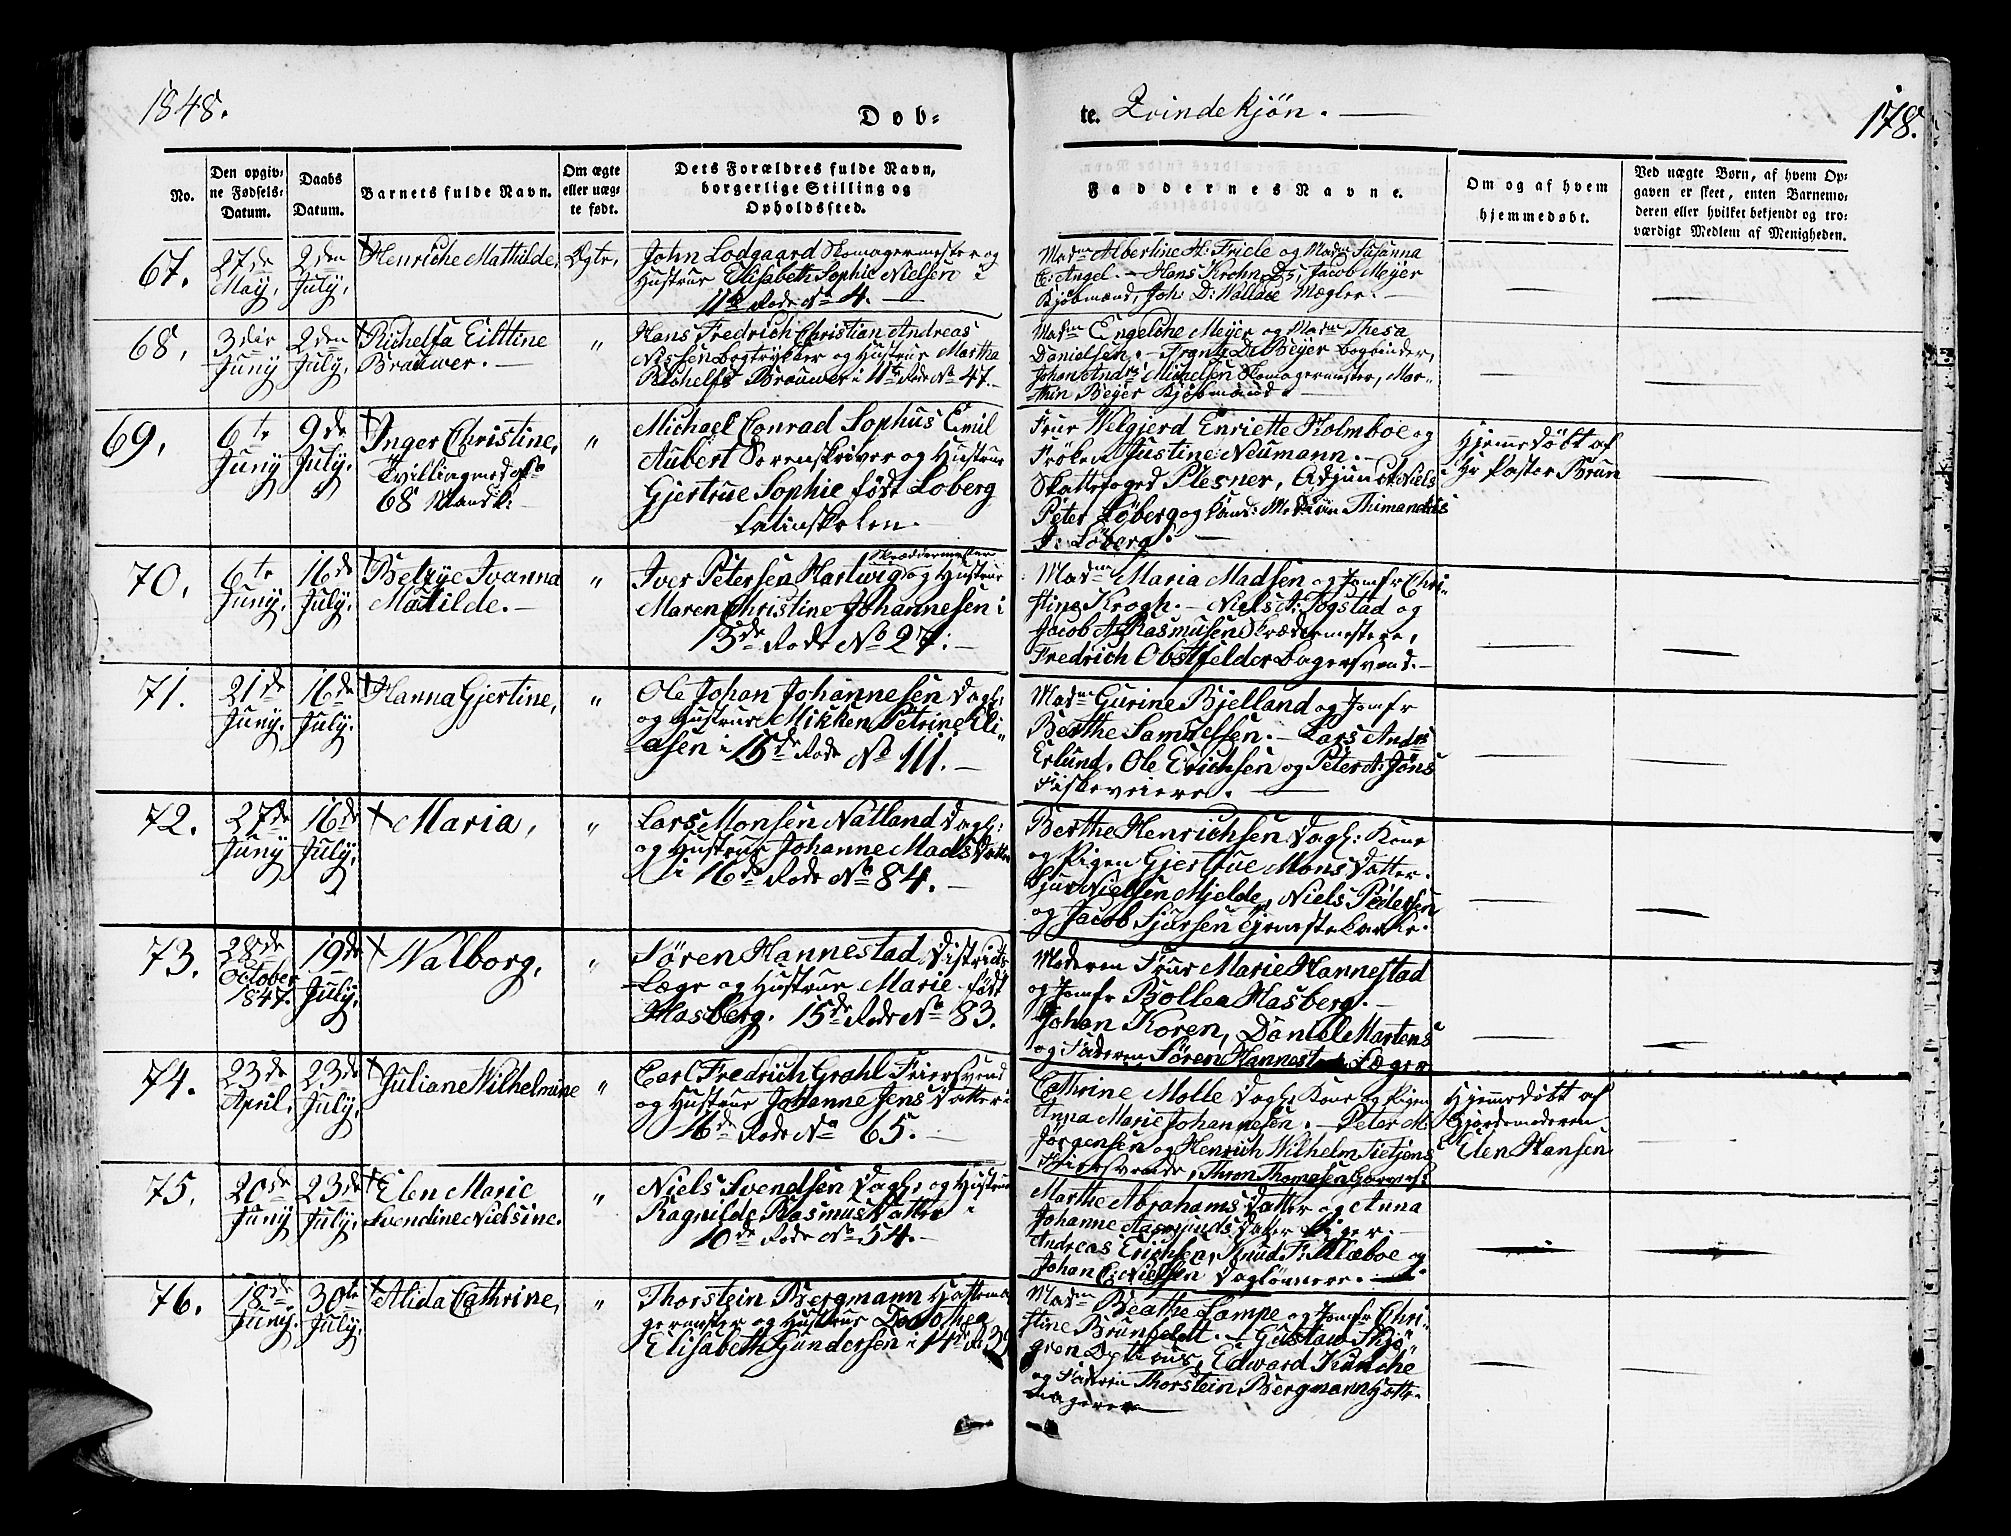 1848.
Døb-
te. Qvindekjön. —
178.
No.
Den opgiv-
ne Fødsels-
Datum.
Daabs
Datum.
Barnets fulde Navn.
Om ægte
eller uæg-
te født.
Dets Forældres fulde Navn,
borgerlige Stilling og
Opholdssted.
Faddernes Navne.
Om og af hvem
hjemmedøbt.
Ved uægte Børn, af hvem Op-
gaven er skeet, enten Barnemo-
deren eller hvilket bekjendt og tro-
værdigt Medlem af Menigheden.
67.
27de
May,
2den
July,
Henriche Mathilde,
Ægte,
John Lodgaard Skomagermester og
Hustrue Elisabeth Sophie Nielsen i
11te Rode No 4. —
Madme Albertine H: Friele og Madm Susanna
C: Angel. — Hans Krohn, Ds, Jacob Meyer
Kjöbmænd, Joh: D: Wallace Mægler. —
68,
3die
Juny
2den
July,
Richelfa Eilttine
Brauwer. —
"
Hans Fredrich Christian Andreas
Nissen Bogtrykker og Hustrue Martha
Richelfs Brauwer i 11te Rode No 47. —
Madme Engelche Meyer og Madm Thesa
Danielsen. — Frantz D: Beyer Bogbinder,
Johan Andrs Michelsen Skomagermester, Mor-
thin Beyer Kjöbmænd.
69,
6te
Juny
9de
July,
Inger Christine,
Tvilling med No
68 Mandk:
"
Michael Conrad Sophus Emil
Aubert Sorenskriver og Hustrue
Gjertrue Sophie født Löberg
Latinskolen.
Frue Welgjerd Enriette Holmboe og
Fröken Justine Neumann. —
Skattefoged Plesner, Adjunct Niels
Peter Löberg og Cand: Thimandus
J: Löberg. —
Hjemmedöbt af
Hr Pastor Brun
70,
6te
Juny,
16de
July,
Betzye Ivanna
Matilde. —
"
Iver Petersen Hartwig Skræddermester og Hustrue
Maren Christine Johannesen i
13de Rode No 27. —
Madme Maria Madsen og Jomfr Chri-
stine Krogh. — Niels A: Togstad og
Jacob A: Rasmusen Skrædermestere,
Fredrich Obstfelder Bagersvend. —
71.
21de
Juny.
16de
July,
Hanna Gjertine,
"
Ole Johan Johannesen Dagl:
og Hustrue Mikken Petrine Eli-
asen i 15de Rode No 111. —
Madme Gurine Bjelland og Jomfr
Berthe Samuelsen. — Lars Andrs
Erlund, Ole Erichsen og Peter A: Jöns
Fiskeveiere. —
72.
27de
Juny
16de
July,
Maria,
"
Lars Monsen Natland Dagl:
og Hustrue Johanne Mads Datter
i 16de Rode No 84. —
Berthe Henrichsen Dagl: Kone
og Pigen Gjertrue Mons Datter.
Sjur Nielsen Mjelde, Niels Pedersen
og Jacob Sjursen Tjenestekarle.
73.
28de
October
1847.
19de
July,
Valborg,
"
Sören Hannestad Districts
Læge og Hustrue Marie født
Hasberg. 15de Rode No 83.
Moderen Frue Marie Hannestad
og Jomfr Bollea Hasberg. —
Johan Koren, Daniel Martens
og Faderen Sören Hannestad Læger
74.
23de
April,
23de
July,
Juliane Wilhelmine
"
Carl Fredrich Grahl Feiersvend
og Hustrue Johanne Jens Datter i
16de Rode No 65. —
Cathrine Molle Dagl: Kone og Pigen
Anna Marie Johannesen. — Peter M:
Jörgensen og Henrich Wilhelm Tietjens
Feiersvende, Thron Thomesen
Hjemmedöbt af
Gjordemoderen
Elen Hansen
75.
20de
Juny
23de
July,
Elen Marie
Svendine Nielsine.
"
Niels Svendsen Dagl: og Hustrue
Ragnilde Rasmus Datter i
16de Rode No 54. —
Marthe Abrahams Datter og Anna
Johanne Aasmunds Datter Piger.
Andreas Erichsen, Knud F: Klæboe og
Johan C: Nielsen Daglönnere. —
76.
18de
Juny.
30te
July,
Alida Cathrine,
"
Thorstein Bergmann Hattema-
germester og Hustrue Dorothea
Elisabeth Gundersen i 14de R 39
Madme Beathe Lampe og Jomfr Chri-
stine Brunfeldt. — Gustaw Skjö-
gren Opticus, Edward Kunche
og Faderen Thorstein Bergmann Hatte-
magere —